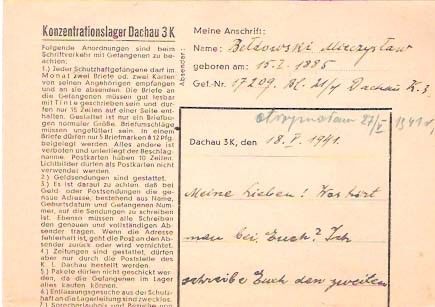 Konzentrationslager Dachau 3 K
Folgende Anordnungen sind beim
Schriftverkehr mit Gefangenen zu be-
achten:
1.) Jeder Schutzhaftgefangene darf im
Monat zwei Briefe od. zwei Karten
von seinen Angehörigen empfangen
und an sie absenden. Die Briefe an
die Gefangenen müssen gut lesbar
mit Tinte geschrieben sein und dür-
fen nur 15 Zeilen auf einer Seite ent-
halten. Gestattet ist nur ein Briefbo-
gen normaler Größe. Briefumschläge
müssen ungefüttert sein. In einem
Briefe dürfen nur 5 Briefmarken à 12 Pfg.
beigelegt werden. Alles andere ist
verboten und unterliegt der Beschlag-
nahme. Postkarten haben 10 Zeilen.
Lichtbilder dürfen als Postkarten nicht
verwendet werden.
2.) Geldsendungen sind gestattet.
3.) Es ist darauf zu achten, daß bei
Geld oder Postsendungen die ge-
naue Adresse, bestehend aus Name,
Geburtsdatum und Gefangenen-Num-
mer, auf die Sendungen zu schreiben
ist. Ebenso müssen alle Schreiben
den genauen und vollständigen Ab-
sender tragen. Wenn die Adresse
fehlerhaft ist, geht die Post an den Ab-
sender zurück oder wird vernichtet.
4.) Zeitungen sind gestattet, dürfen
aber nur durch die Poststelle des
K. L. Dachau bestellt werden.
5.) Pakete dürfen nicht geschickt wer-
den, da die Gefangenen im Lager
alles kaufen können.
6.) Entlassungsgesuche aus der Schutz-
haft an die Lagerleitung sind zwecklos.
7.) Sprecherlaubnis und Besuche von
Absender:
Meine Anschrift:
Name: Bełzowski Mieczysław
geboren am: 15.2.1885
Gef.-Nr. 17209. Bl. 21/4 Dachau K.3.
otrzymałem 27/V 1941 r.
Dachau 3K, den 18.V.1941.
Meine Lieben! Was hört
man bei Euch? Ich
schreibe Euch den zweiten